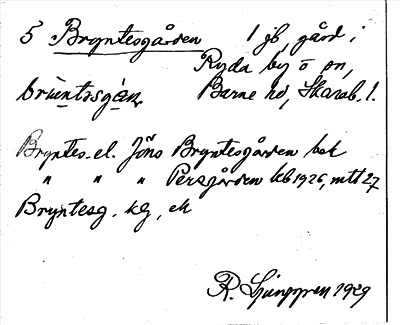 5 Bryntesgården 1 jb, gård i
Ryda by o sn,
brùntəsgàṇ Barne hd, Skarab. l.
Bryntes- el. Jöns Bryntesgården bek
" " " Persgården kb 1926, mtl 27
Bryntesg. kg, ek
R. Ljunggren 1929